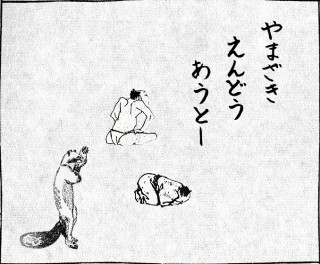 やまざき
えんどう
あうとー